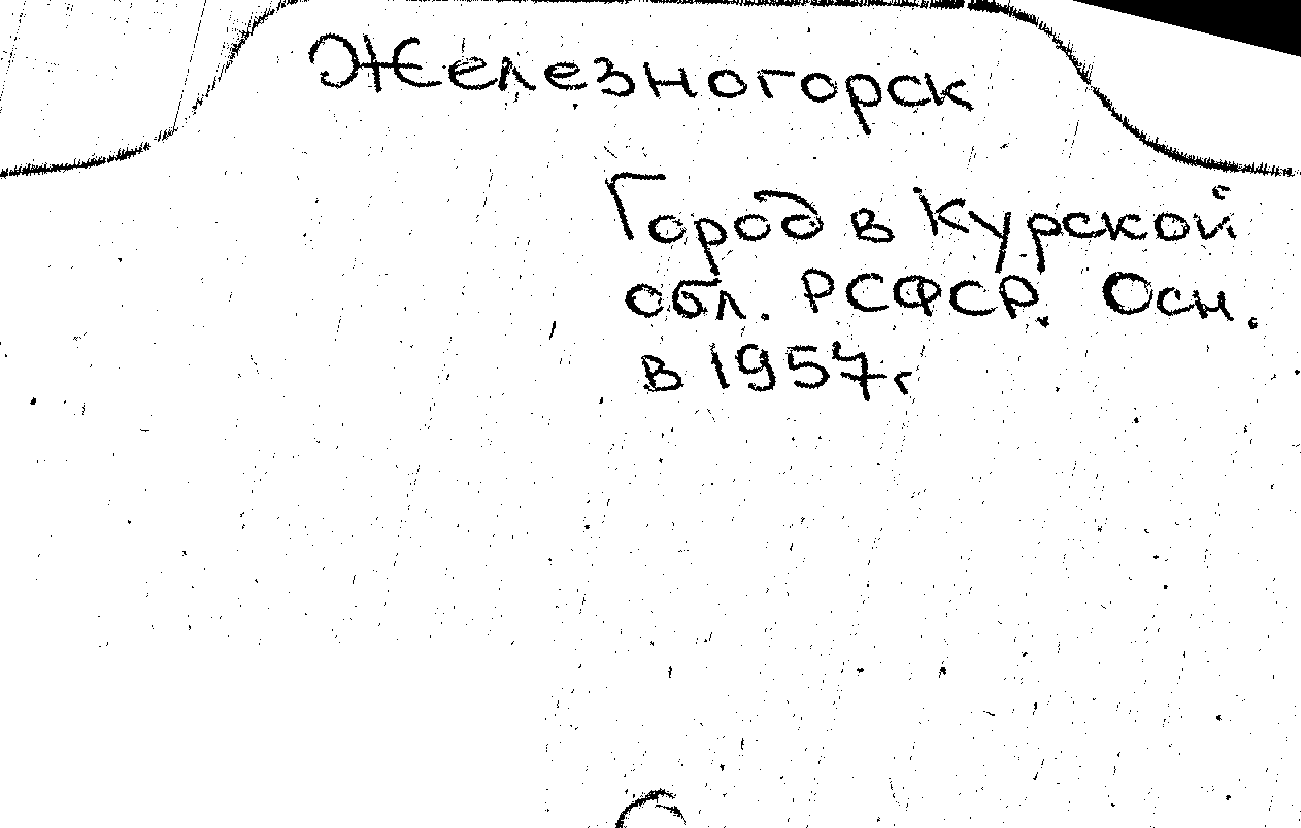 Железногорск
Город в Курской
обл. РСФСР. Осн.
в 1957 г